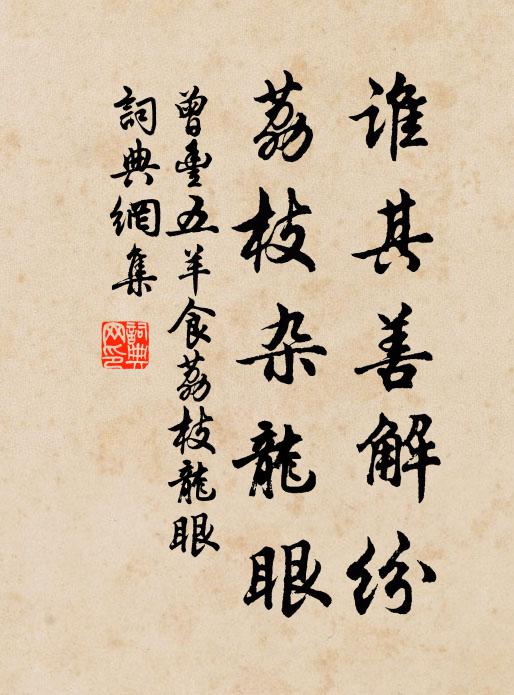 谁其善解纷
荔枝杂龍眼
曾豊五羊食荔枝龍眼
詞典網集
詞典网印